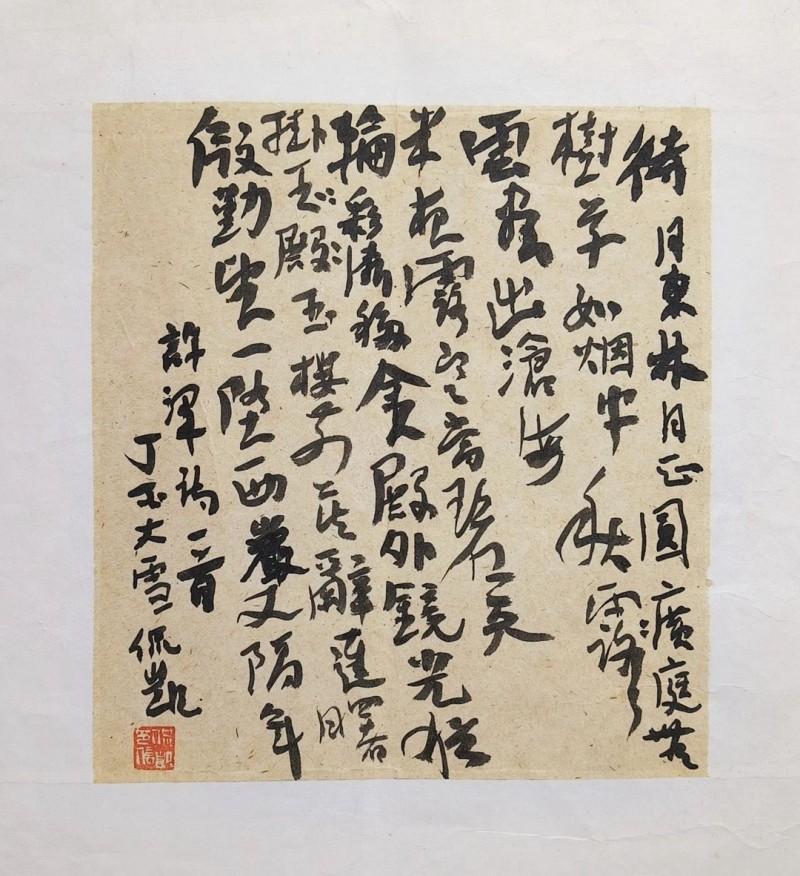 待月東林月正圓廣庭無
樹草如烟中秋
雲盡出滄海
半夜露寒當碧天
輪彩漸移金殿外鏡光猶
掛玉殿玉樓前莫辭達曙
殷勤望一墮西巖又隔年
許渾詩一首
丁酉大雪 侃凱